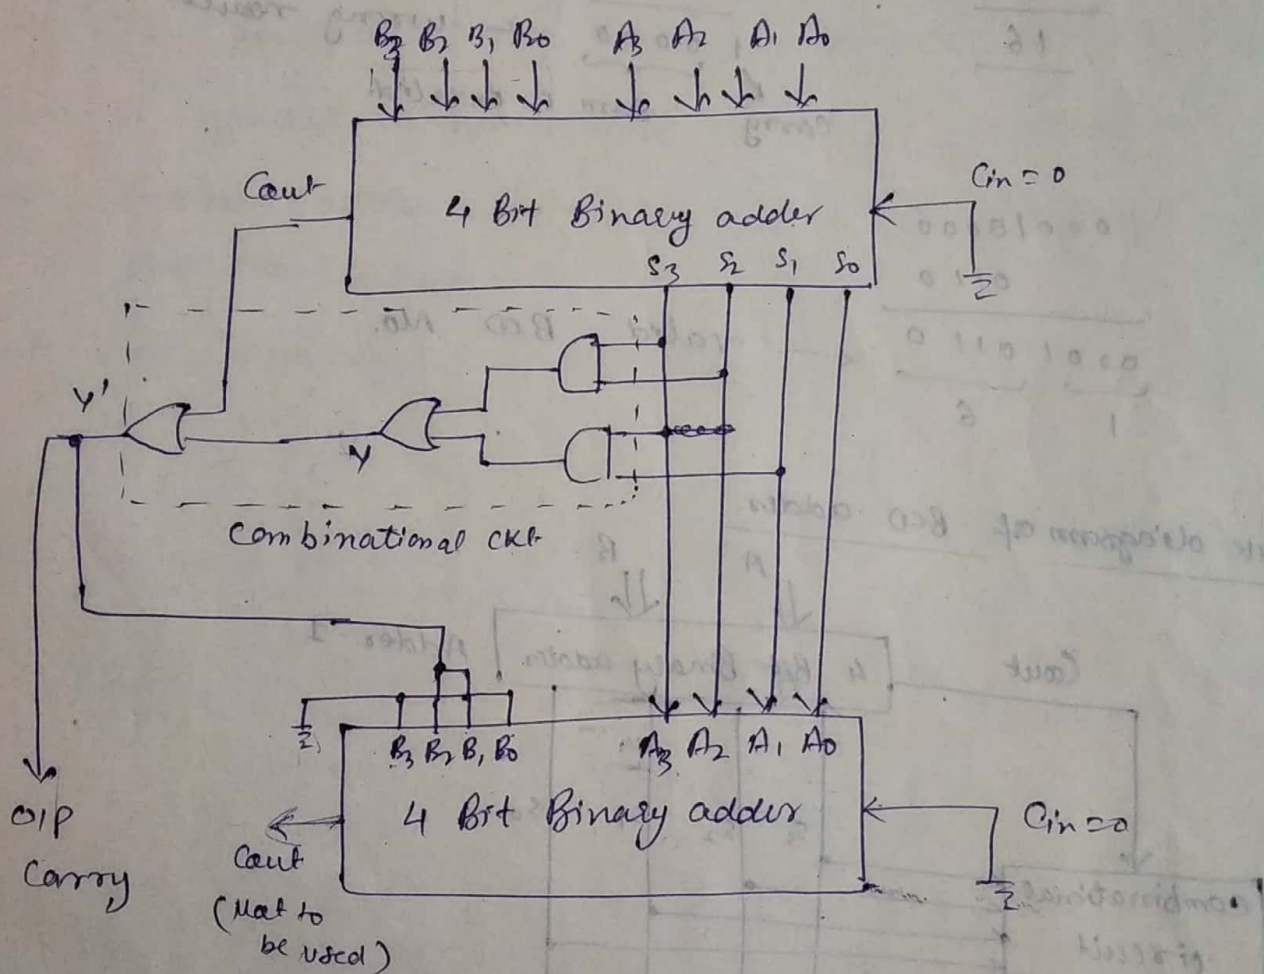 B3 B2 B1 B0 A3 A2 A1 A0
Cout
4 Bit Binary adder
Cin = 0
S3 S2 S1 S0
Y'
Y
Combinational ckt
B3 B2 B1 B0 A3 A2 A1 A0
4 Bit Binary adder
Cin = 0
O/P
Carry
Cout
(Not to
be used)